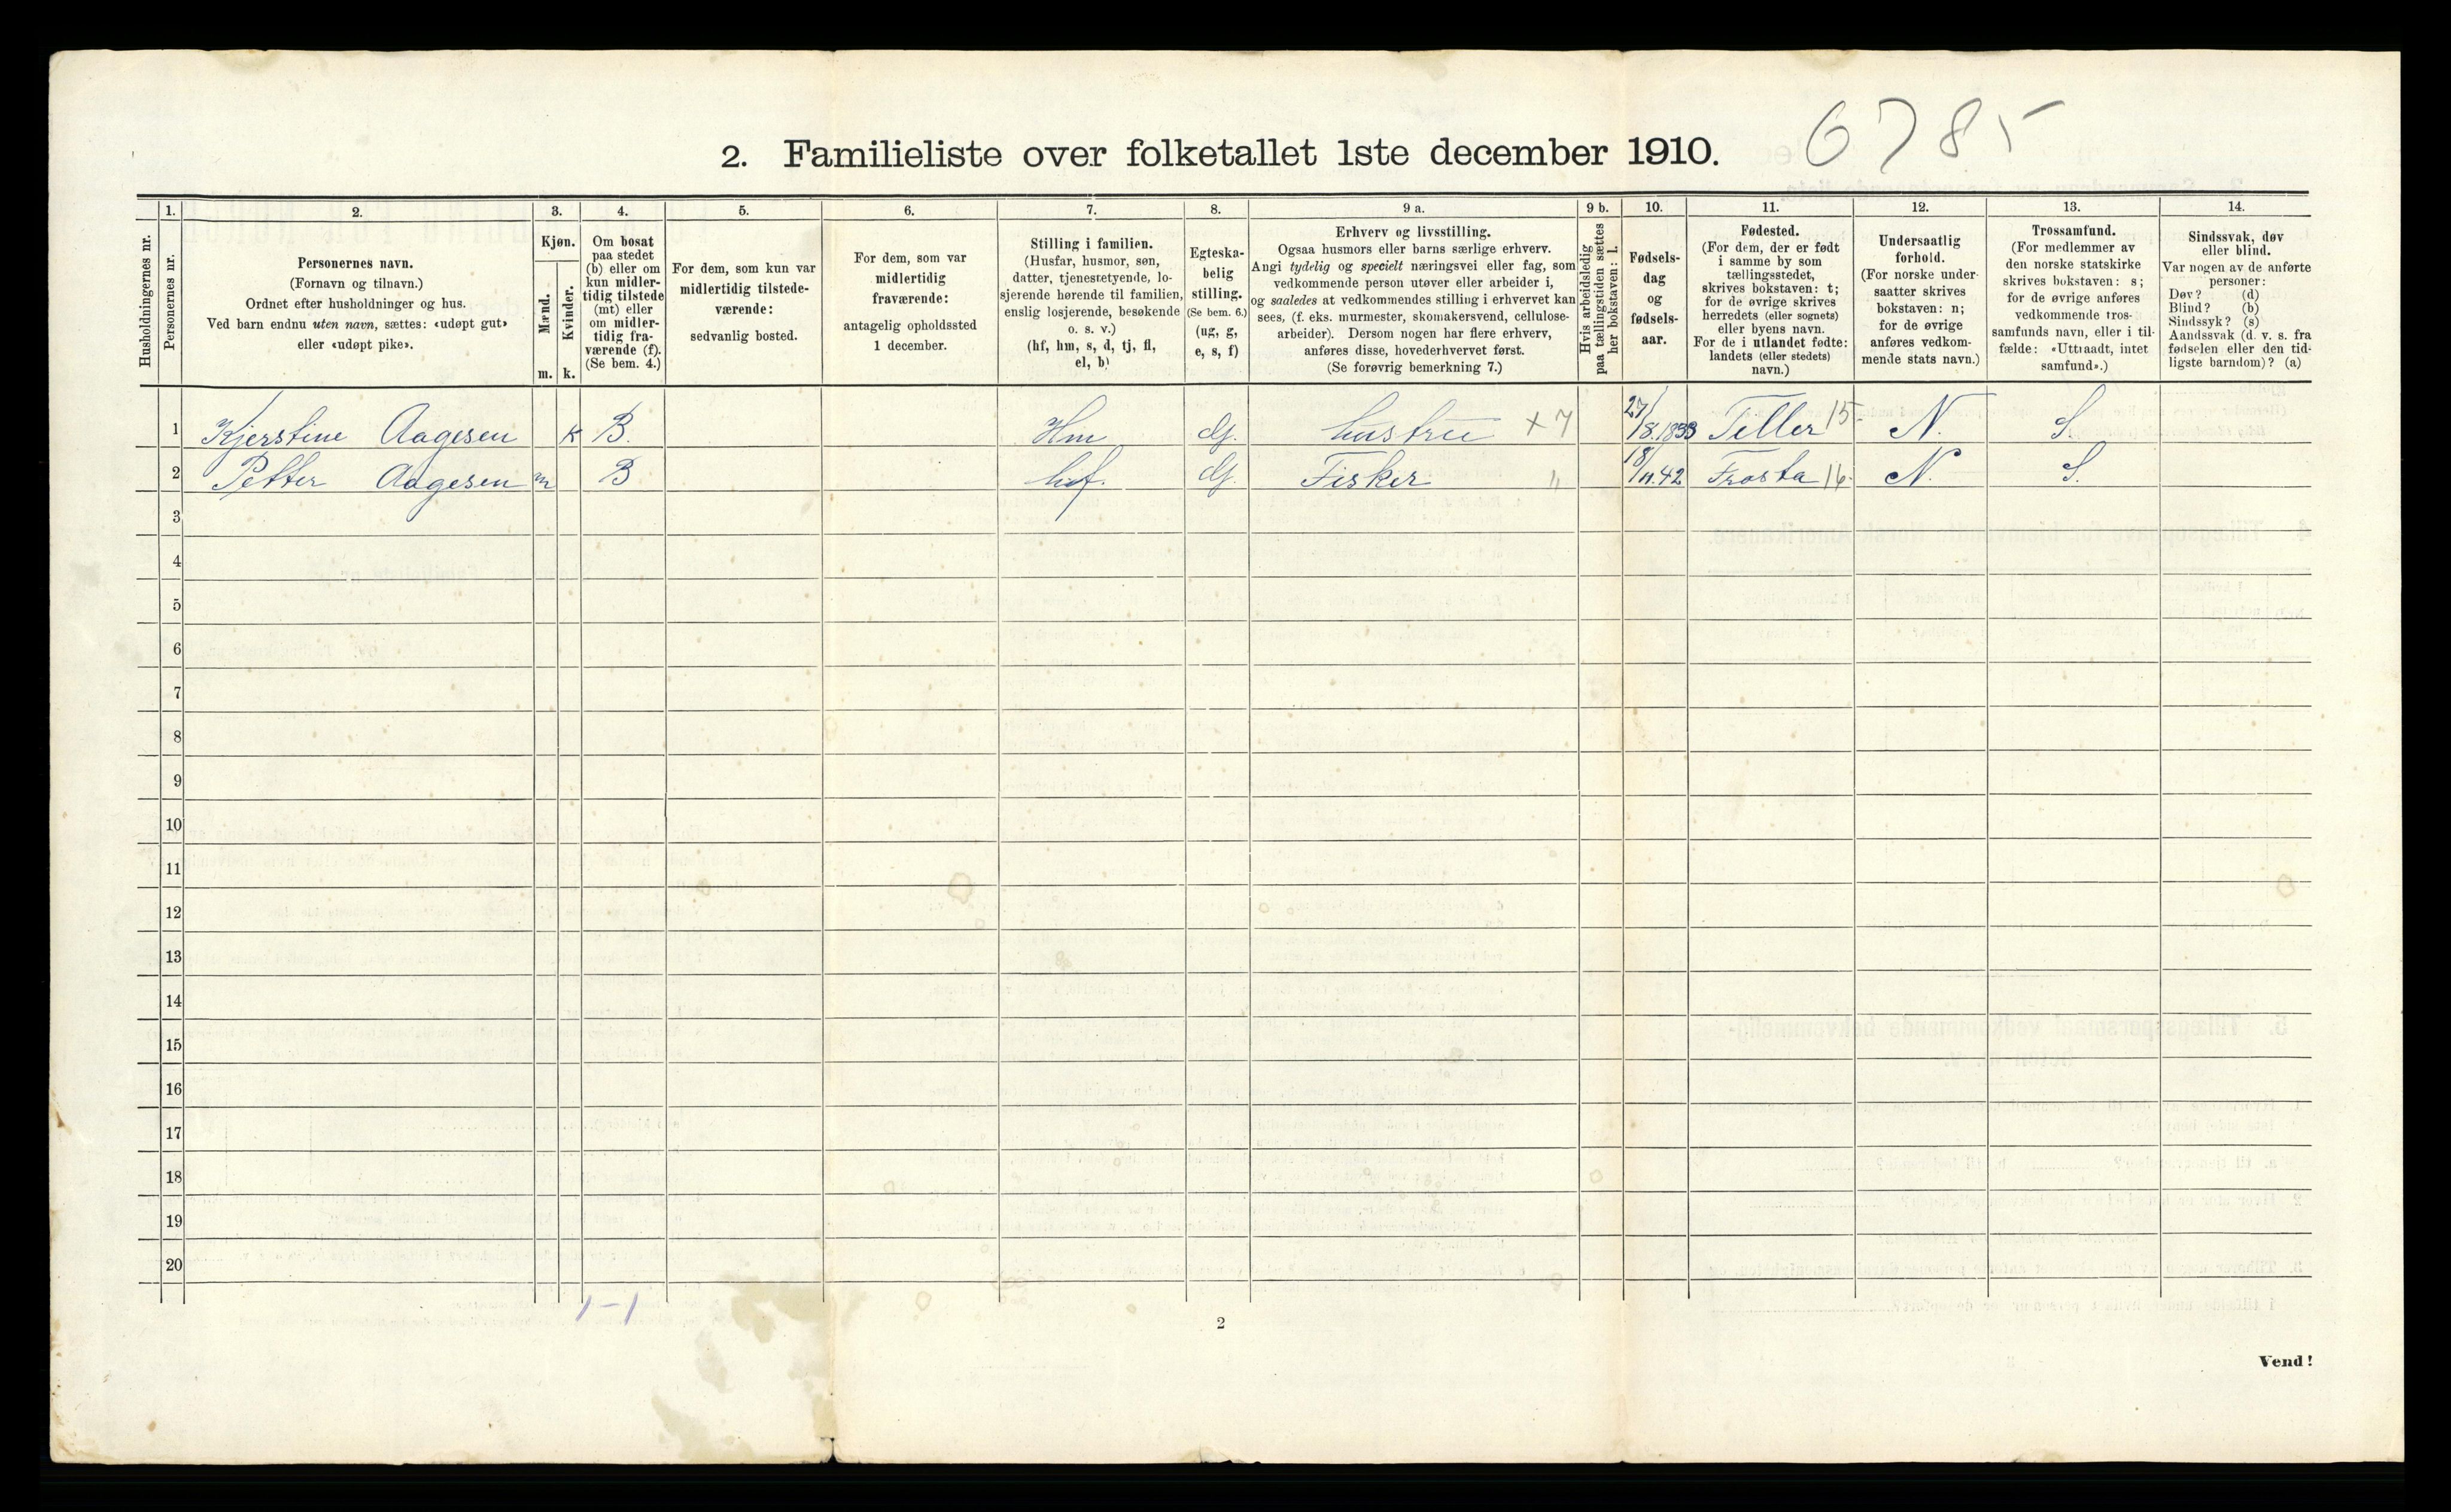 2. Familieliste over folketallet 1ste december 1910. 6785
1. 2. 3. 4. 5. 6. 7. 8. 9 a. 9 b. 10. 11. 12. 13. 14.
Husholdningernes nr.
Personernes nr.
Personernes navn.
(Fornavn og tilnavn.)
Ordnet efter husholdninger og hus.
Ved barn endnu uten navn, sættes: «udøpt gut»
eller «udøpt pike».
Kjøn.
Mænd.
Kvinder.
m. k.
Om bosat
paa stedet
(b) eller om
kun midler-
tidig tilstede
(mt) eller
om midler-
tidig fra-
værende (f).
(Se bem. 4.)
For dem, som kun var
midlertidig tilstede-
værende:
sedvanlig bosted.
For dem, som var
midlertidig
fraværende:
antagelig opholdssted
1 december.
Stilling i familien.
(Husfar, husmor, søn,
datter, tjenestetyende, lo-
sjerende hørende til familien,
enslig losjerende, besøkende
o. s. v.)
(hf, hm, s, d, tj, fl,
el, b)
Egteska-
belig
stilling.
(Se bem. 6.)
(ug, g,
e, s, f)
Erhverv og livsstilling.
Ogsaa husmors eller barns særlige erhverv.
Angi tydelig og specielt næringsvei eller fag, som
vedkommende person utøver eller arbeider i,
og saaledes at vedkommendes stilling i erhvervet kan
sees, (f. eks. murmester, skomakersvend, cellulose-
arbeider). Dersom nogen har flere erhverv,
anføres disse, hovederhvervet først.
(Se forøvrig bemerkning 7.)
Hvis arbeidsledig
paa tællingstiden sættes
her bokstaven: l.
Fødsels-
dag
og
fødsels-
aar.
Fødested.
(For dem, der er født
i samme by som
tællingsstedet,
skrives bokstaven: t;
for de øvrige skrives
herredets (eller sognets)
eller byens navn.
For de i utlandet fødte:
landets (eller stedets)
navn.)
Undersaatlig
forhold.
(For norske under-
saatter skrives
bokstaven: n;
for de øvrige
anføres vedkom-
mende stats navn.)
Trossamfund.
(For medlemmer av
den norske statskirke
skrives bokstaven: s;
for de øvrige anføres
vedkommende tros-
samfunds navn, eller i til-
fælde: «Uttraadt, intet
samfund».)
Sindssvak, døv
eller blind.
Var nogen av de anførte
personer:
Døv? (d)
Blind? (b)
Sindssyk? (s)
Aandssvak (d. v. s. fra
fødselen eller den tid-
ligste barndom)? (a)
1 Kjerstine Aagesen k B. Hm G. hustru x 7 27/8.1838 Teller 15 N. S.
2 Petter Aagesen m B hf. G. Fisker " 18/11.42 Frosta 16 N. S.
3
4
5
6
7
8
9
10
11
12
13
14
15
16
17
18
19
20
1-1
2
Vend!